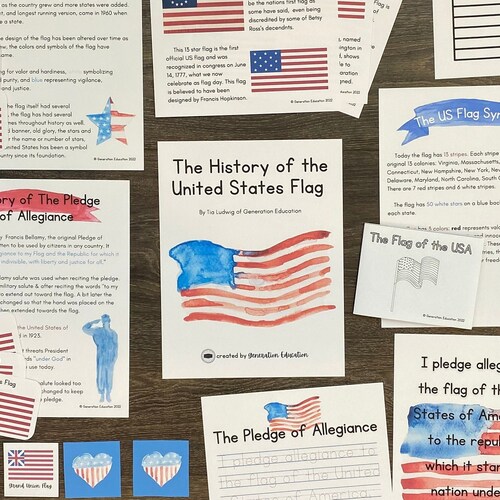 as the country grew and more states were added.
t, and longest running version, came in 1960 when
a state.
he design of the flag has been altered over time as
new, the colors and symbols of the flag have
g for valor and hardiness, white symbolizing
purity, and blue representing vigilance,
and justice.
the flag itself had several
the flag has had several
throughout history as well.
banner, old glory, the stars and
the name or number of stars,
United States has been a symbol
country since its foundation.
© Generation Education 2022
be the nations first flag as
some have said, even being
discredited by some of Betsy
Ross's descendants.
This 13 star flag is the first
official US flag and was
recognized in congress on June
14, 1777, what we now
celebrate as flag day. This flag
is believed to have been
designed by Francis Hopkinson.
© Generation Education 2022
The US Flag Sym
Today the flag has 13 stripes. Each stripe
original 13 colonies: Virginia, Massachusetts,
Connecticut, New Hampshire, New York, New
Delaware, Maryland, North Carolina, South C
There are 7 red stripes and 6 white stripes.
The flag has 50 white stars on a blue back
each state.
The History of the
United States Flag
By Tia Ludwig of Generation Education
created by generation Education
The Flag of the USA
ory of The Pledge
of Allegiance
Francis Bellamy, the original Pledge of
to be used by citizens in any country. It
giance to my Flag and the Republic for which it
indivisible, with liberty and justice for all."
salute was used when reciting the pledge.
military salute & after reciting the words "to my
extend out toward the flag. A bit later the
changed so that the hand was placed on the
then extended towards the flag.
the United States of
in 1923.
threats President
words "under God" in
use today.
salute looked too
changed to keep
pledge.
© Generation Education 2022
Flag
Grand Union Flag
The Pledge of Allegiance
I pledge allegiance to
the flag of the United
States of America
I pledge alleg
the flag of the
States of Ame
to the repub
which it stan
nation under